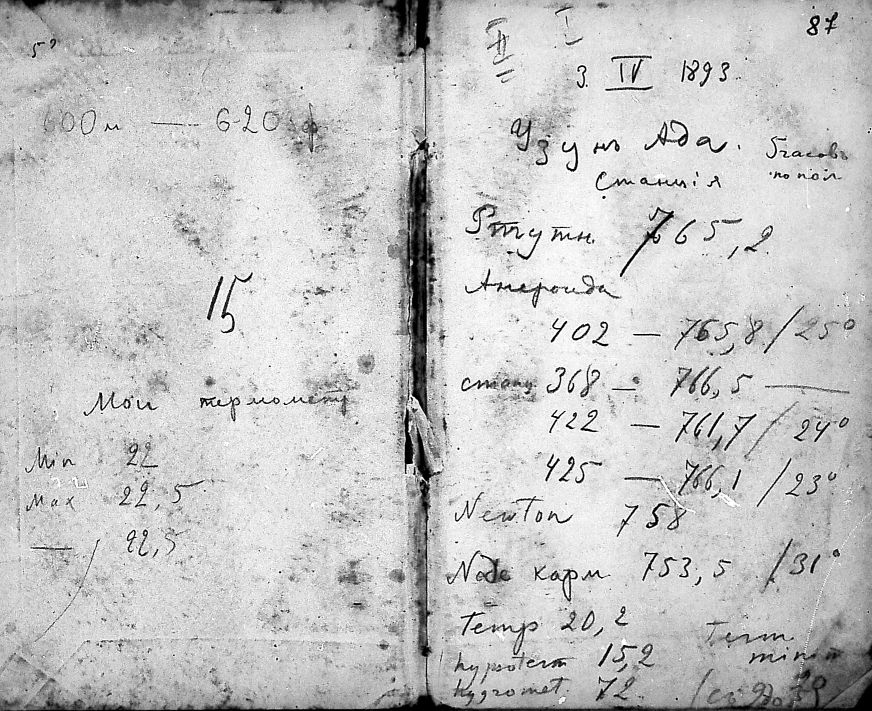 600 м — 620
15
Мои термомет
Min 22
Max 22,5
— 22,5
87
I
II
3. IV 1893.
Узунъ Ада. 5 часовъ
станція по пол
Ртутн. 765,2
Анероида
402 — 765,8 / 25°
станц 368 — 766,5 —
422 — 761,7 / 24°
425 — 766,1 / 23°
Newton 758
карм. 753,5 / 31°
Temp 20,2 Term
hypoterm 15,2 minim
hygromet. 72.